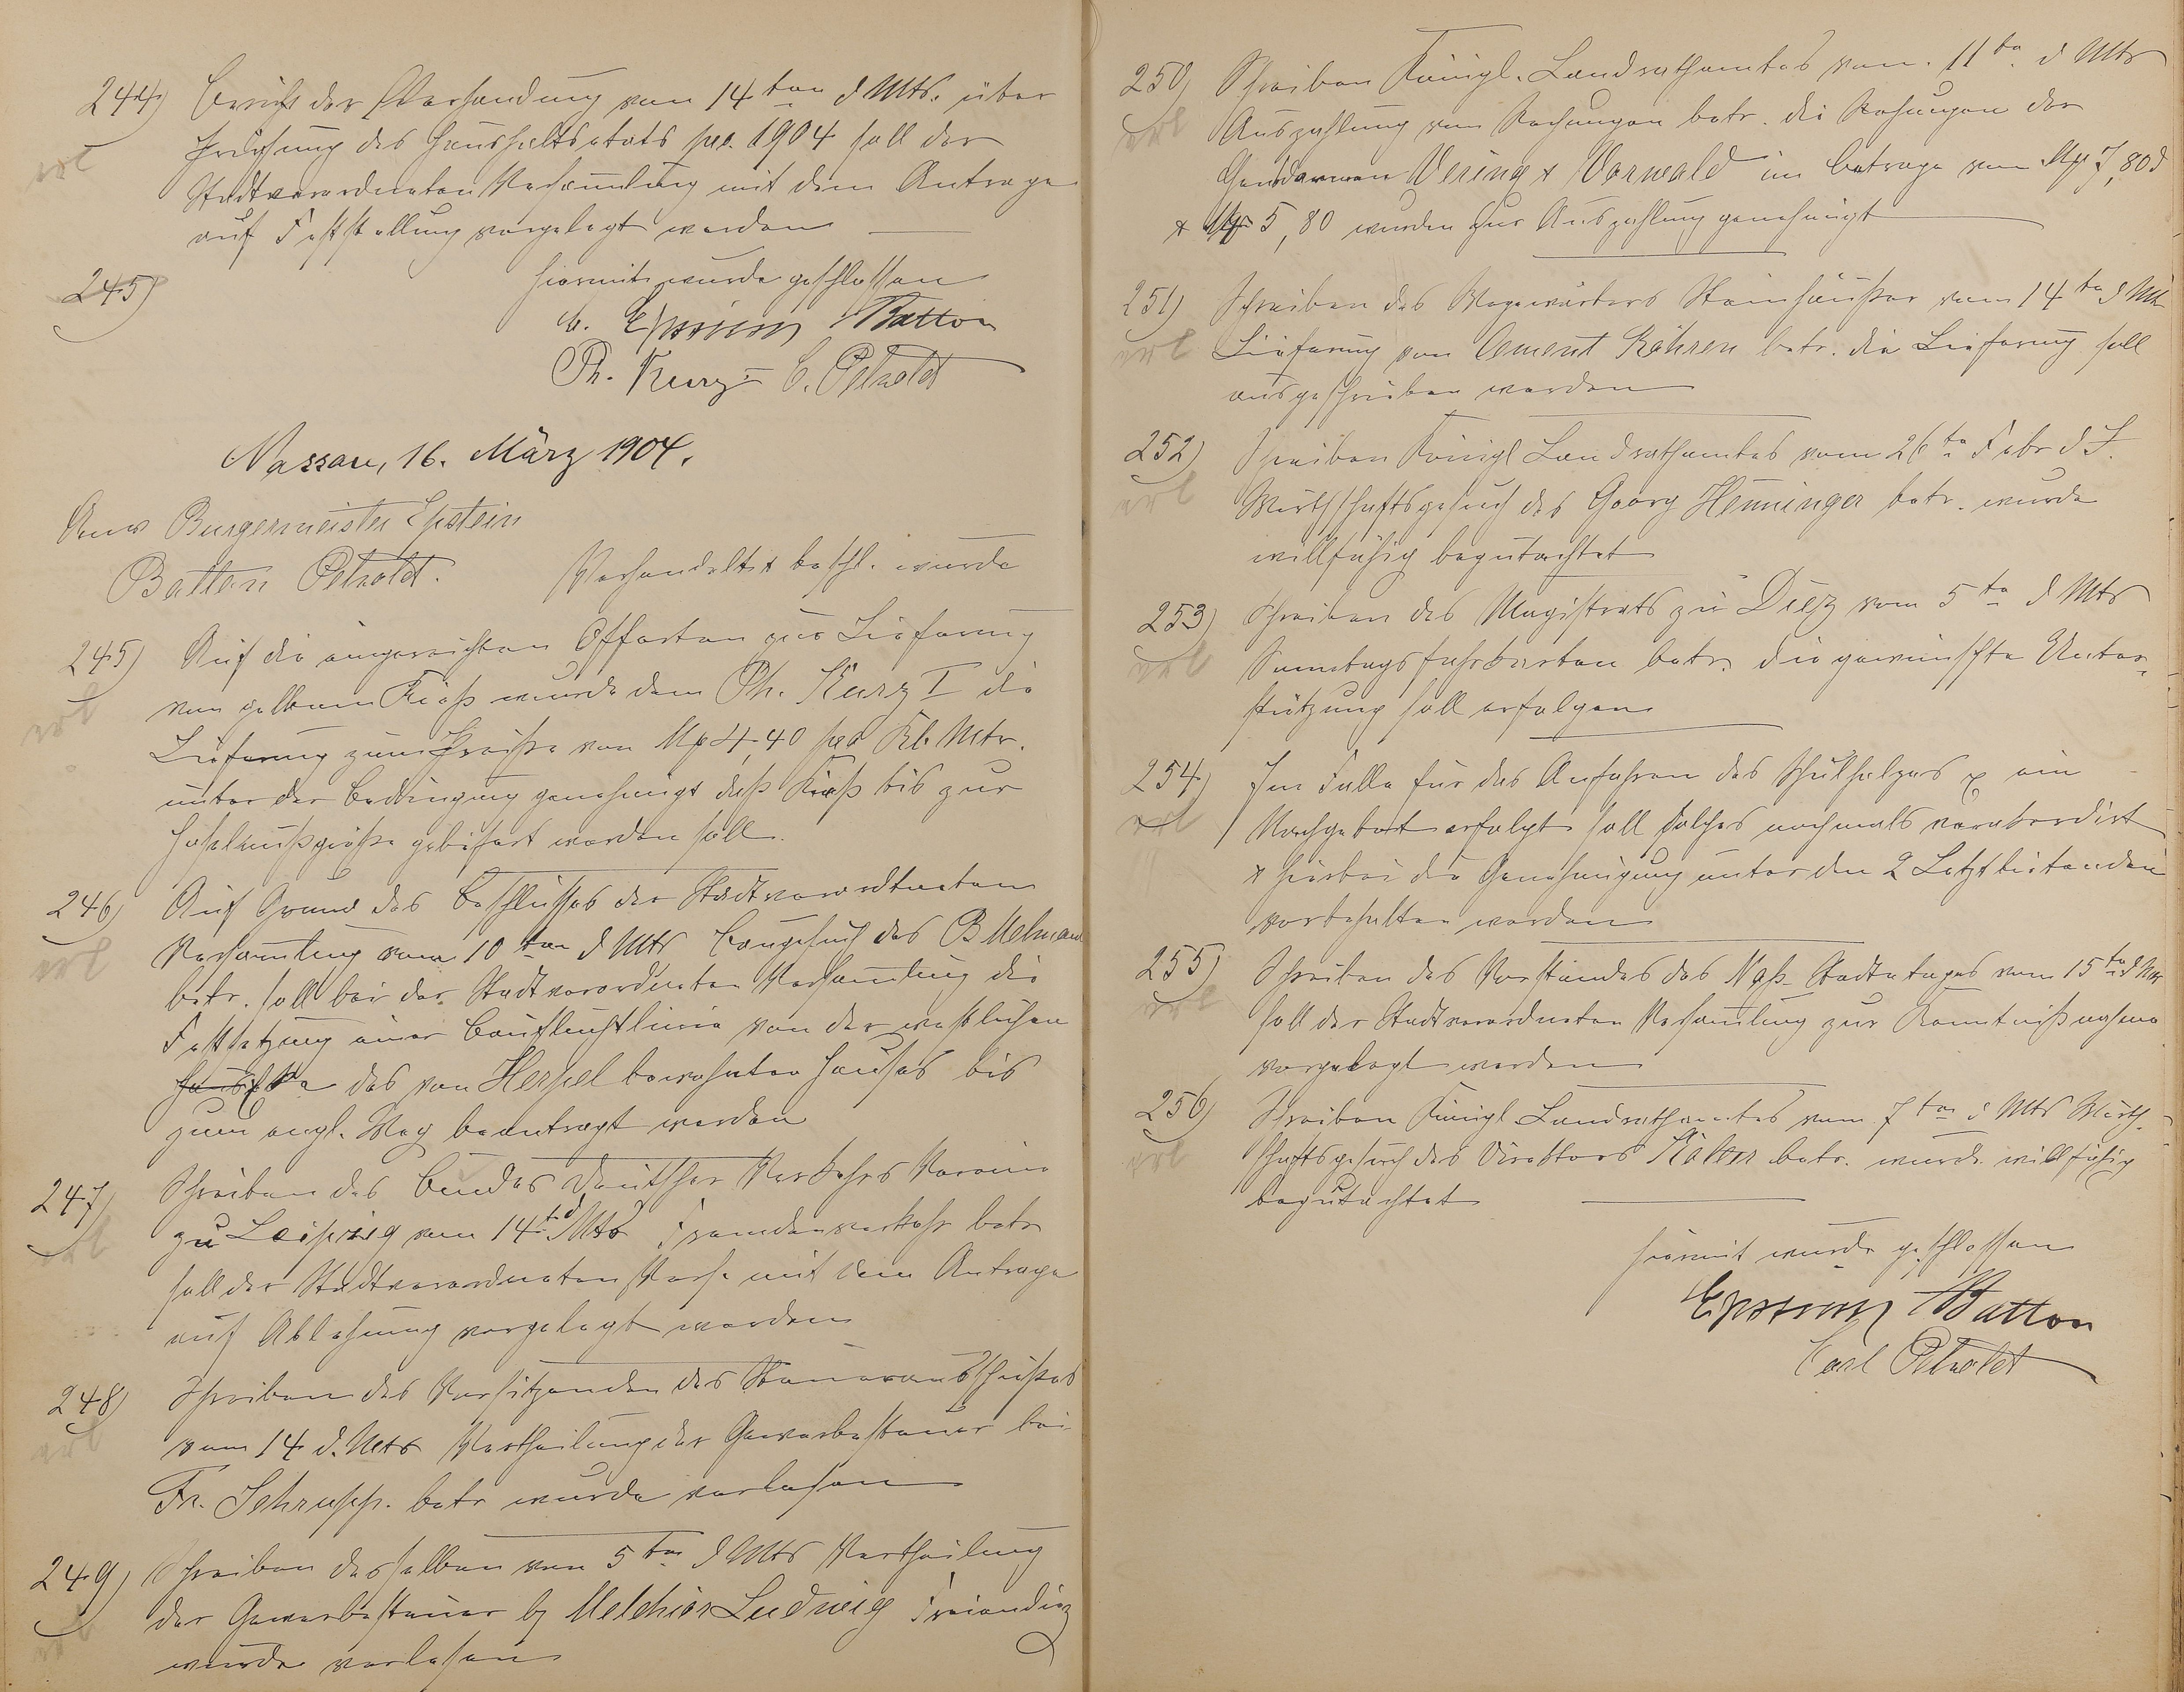 244) Bericht der Verhandlung vom 14ten d Mts. über
erl
Prüfung des Haushaltsetats pro 1904 soll der
Stadtverordneten Versammlung mit dem Antrage
auf Feststellung vorgelegt werden
245)
hiermit wurde geschlossen
Epstein Batton
Ph. Kurz C. Petzoldt
Nassau, 16. März 1904.
Anw Burgermeister Epstein
Batton Petzoldt. Verhandelt & beschl. wurde
245) Auf die eingereichten Offerten zur Lieferung
erl
von gelbem Kieß wurde dem Ph. Kurz I die
Lieferung zum Preiße von Mk 4,40 pro Kb Mtr.
unter der Bedingung genehmigt daß Kieß bis zur
Haselnußgröße geliefert werden soll.
246) Auf Grund des Beschlusses der Stadtverordneten
erl
Versammlung vom 10ten d Mts Baugesuch des B
betr. soll bei der Stadtverordneten Versammlung die
Festsetzung einer Baufluchtlinie von der westlichen
des von Herpel bewohnten Hauses bis
zum engl. Weg beantragt werden
247) Schreiben des Bundes Deutscher Verkehrs Vereine
erl
zu Leipzig vom 14t d Mts Fremdenverkehr betr
soll der Stadtverordneten Vers. mit dem Antrage
auf Ablehnung vorgelegt werden
248) Schreiben des Vorsitzenden des Steuerausschußes
erl
vom 14 d. Mts Vertheilung der Gewerbesteuer bei
Fr. Schrupp. betr wurde verlesen
249) Schreiben desselben vom 5ten d Mts Vertheilung
erl
der Gewerbesteuer by Melchior Ludwig Freiendiez
wurde verlesen
250) Schreiben Königl. Landrathamtes vom 11te d Mts
erl
Auszahlung von Rechnungen betr. die Rechnungen der
Gendarmen Vering & Vorwald im Betrage von Mk 7,80
& Mk 5,80 wurden zur Auszahlung genehmigt
251) Schreiben des Wegewärters Steinhäußer vom 14te d Mts
erl
Lieferung von Cement Röhren betr. die Lieferung soll
ausgeschrieben werden
252) Schreiben Königl Landrathamtes vom 26te Febr d J.
erl
Wirthschaftsgesuch des Georg Henninger betr. wurde
willfähig begutachtet
253) Schreiben des Magistrats zu Diez vom 5te d Mts
erl
Sonntagsfahrkarten betr. die gewünschte Unter-
stützung soll erfolgen
254) Im Falle für das Anfahren des Schulholzes ein
erl
Nachgebot erfolgt soll solches nochmals verakordirt
& hierbei die Genehmigung unter den 2 Letztbietenden
vorbehalten werden
255) Schreiben des Vorstandes des Naß. Städtetages vom 15te d Mts
erl
soll der Stadtverordneten Versammlung zur Kenntnißnahme
vorgelegt werden
256) Schreiben Königl Landrathamtes vom 7ten d Mts Wirth-
erl
schaftsgesuch des Direktors betr. wurde willfähig
begutachtet
hiermit wurde geschlossen
Epstein Batton
Carl Petzoldt